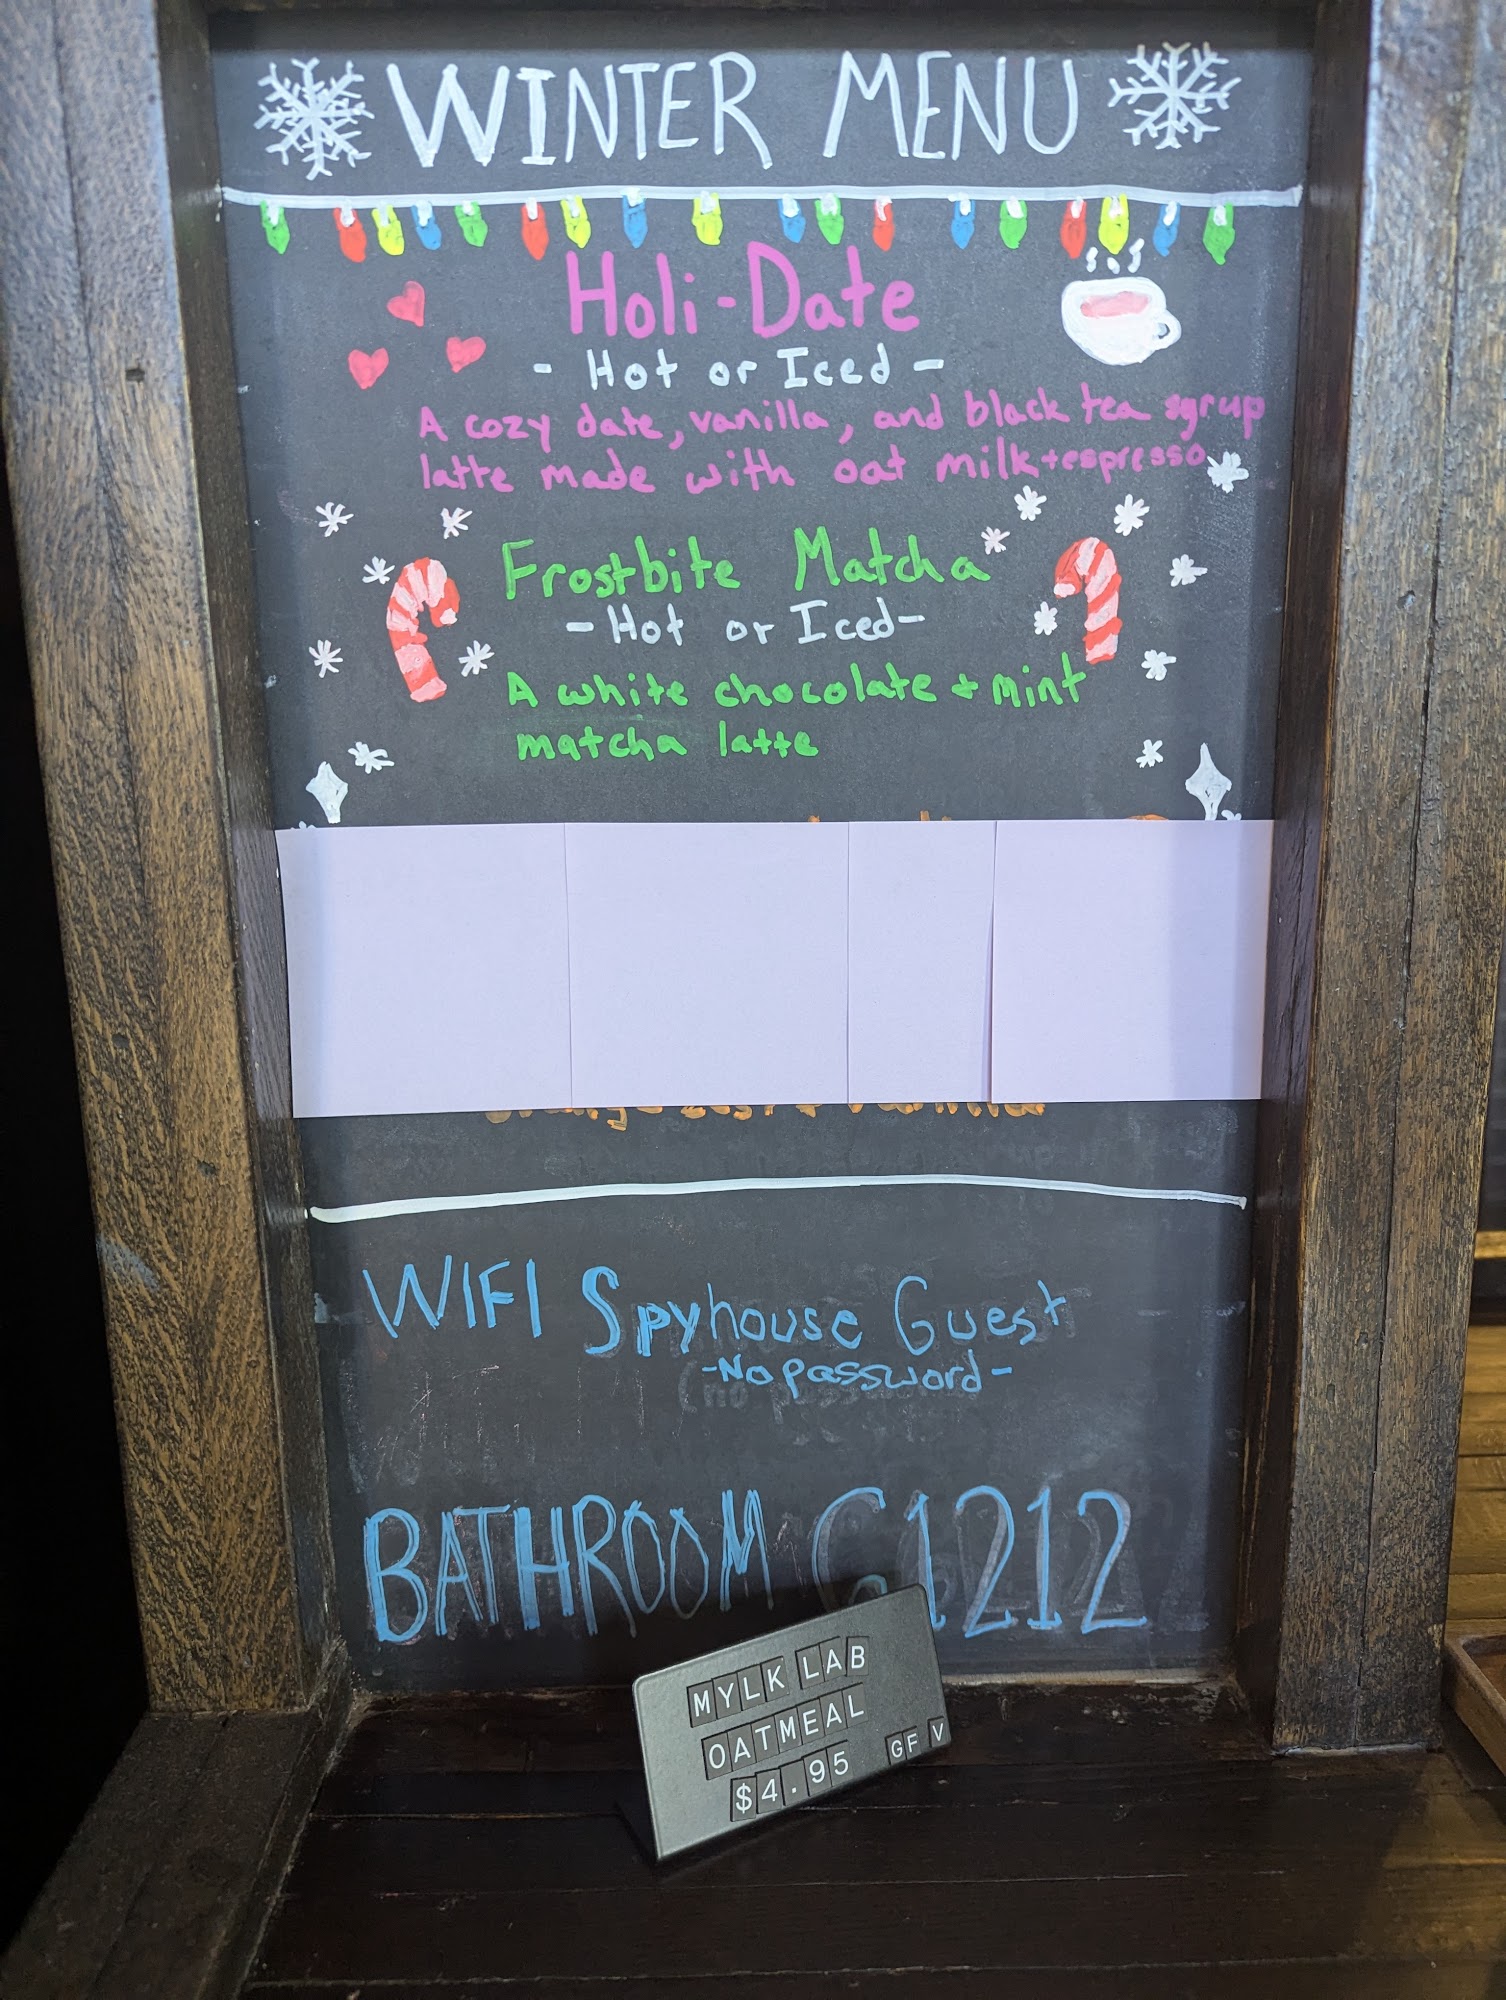 WINTER MENU
Holi-Date
- Hot or Iced -
A cozy date, vanilla, and black tea syrup
latte made with oat milk + espresso
Frostbite Matcha
- Hot or Iced -
A white chocolate + mint
matcha latte
WIFI Spyhouse Guest
- No password -
(no password
BATHROOM C1212
MYLK LAB
OATMEAL
$4.95 GF V